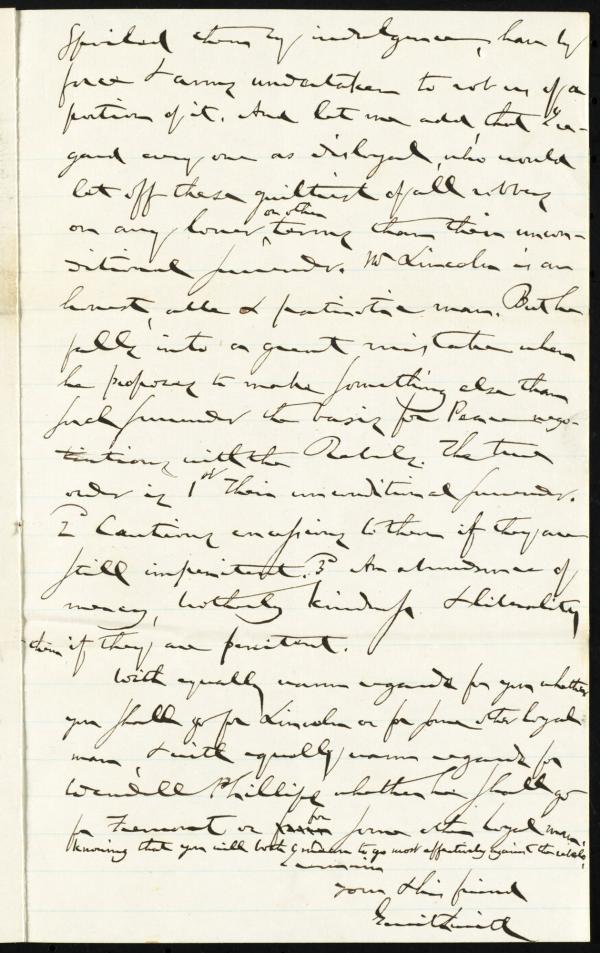 spoiled them by indulgence, have by
force & arms undertaken to rob us of a
portion of it. And let me add, that I re-
gard every one as disloyal, who would
let off these guiltiest of all robbers
on any lower or other terms than their uncon-
ditional surrender. Mr Lincoln is an
honest, able & patriotic man. But he
falls into a great mistake when
he proposes to make something else than
such surrender the basis for Peace nego-
tiations with the Rebels. The true
order is 1st Their unconditional surrender.
2d Cautious concessions to them if they are
still impenitent. 3d An abundance of
mercy, brotherly kindness & liberality
if they are penitent.
With equally warm regards for you whether
you shall go for Lincoln or for some other loyal
man, & with equally warm regards for
Wendell Phillips whether he shall go
for Fremont or for some other loyal man,
knowing that you will both endeavor to go most effectively against the rebels,
I remain
your & his friend
Gerrit Smith